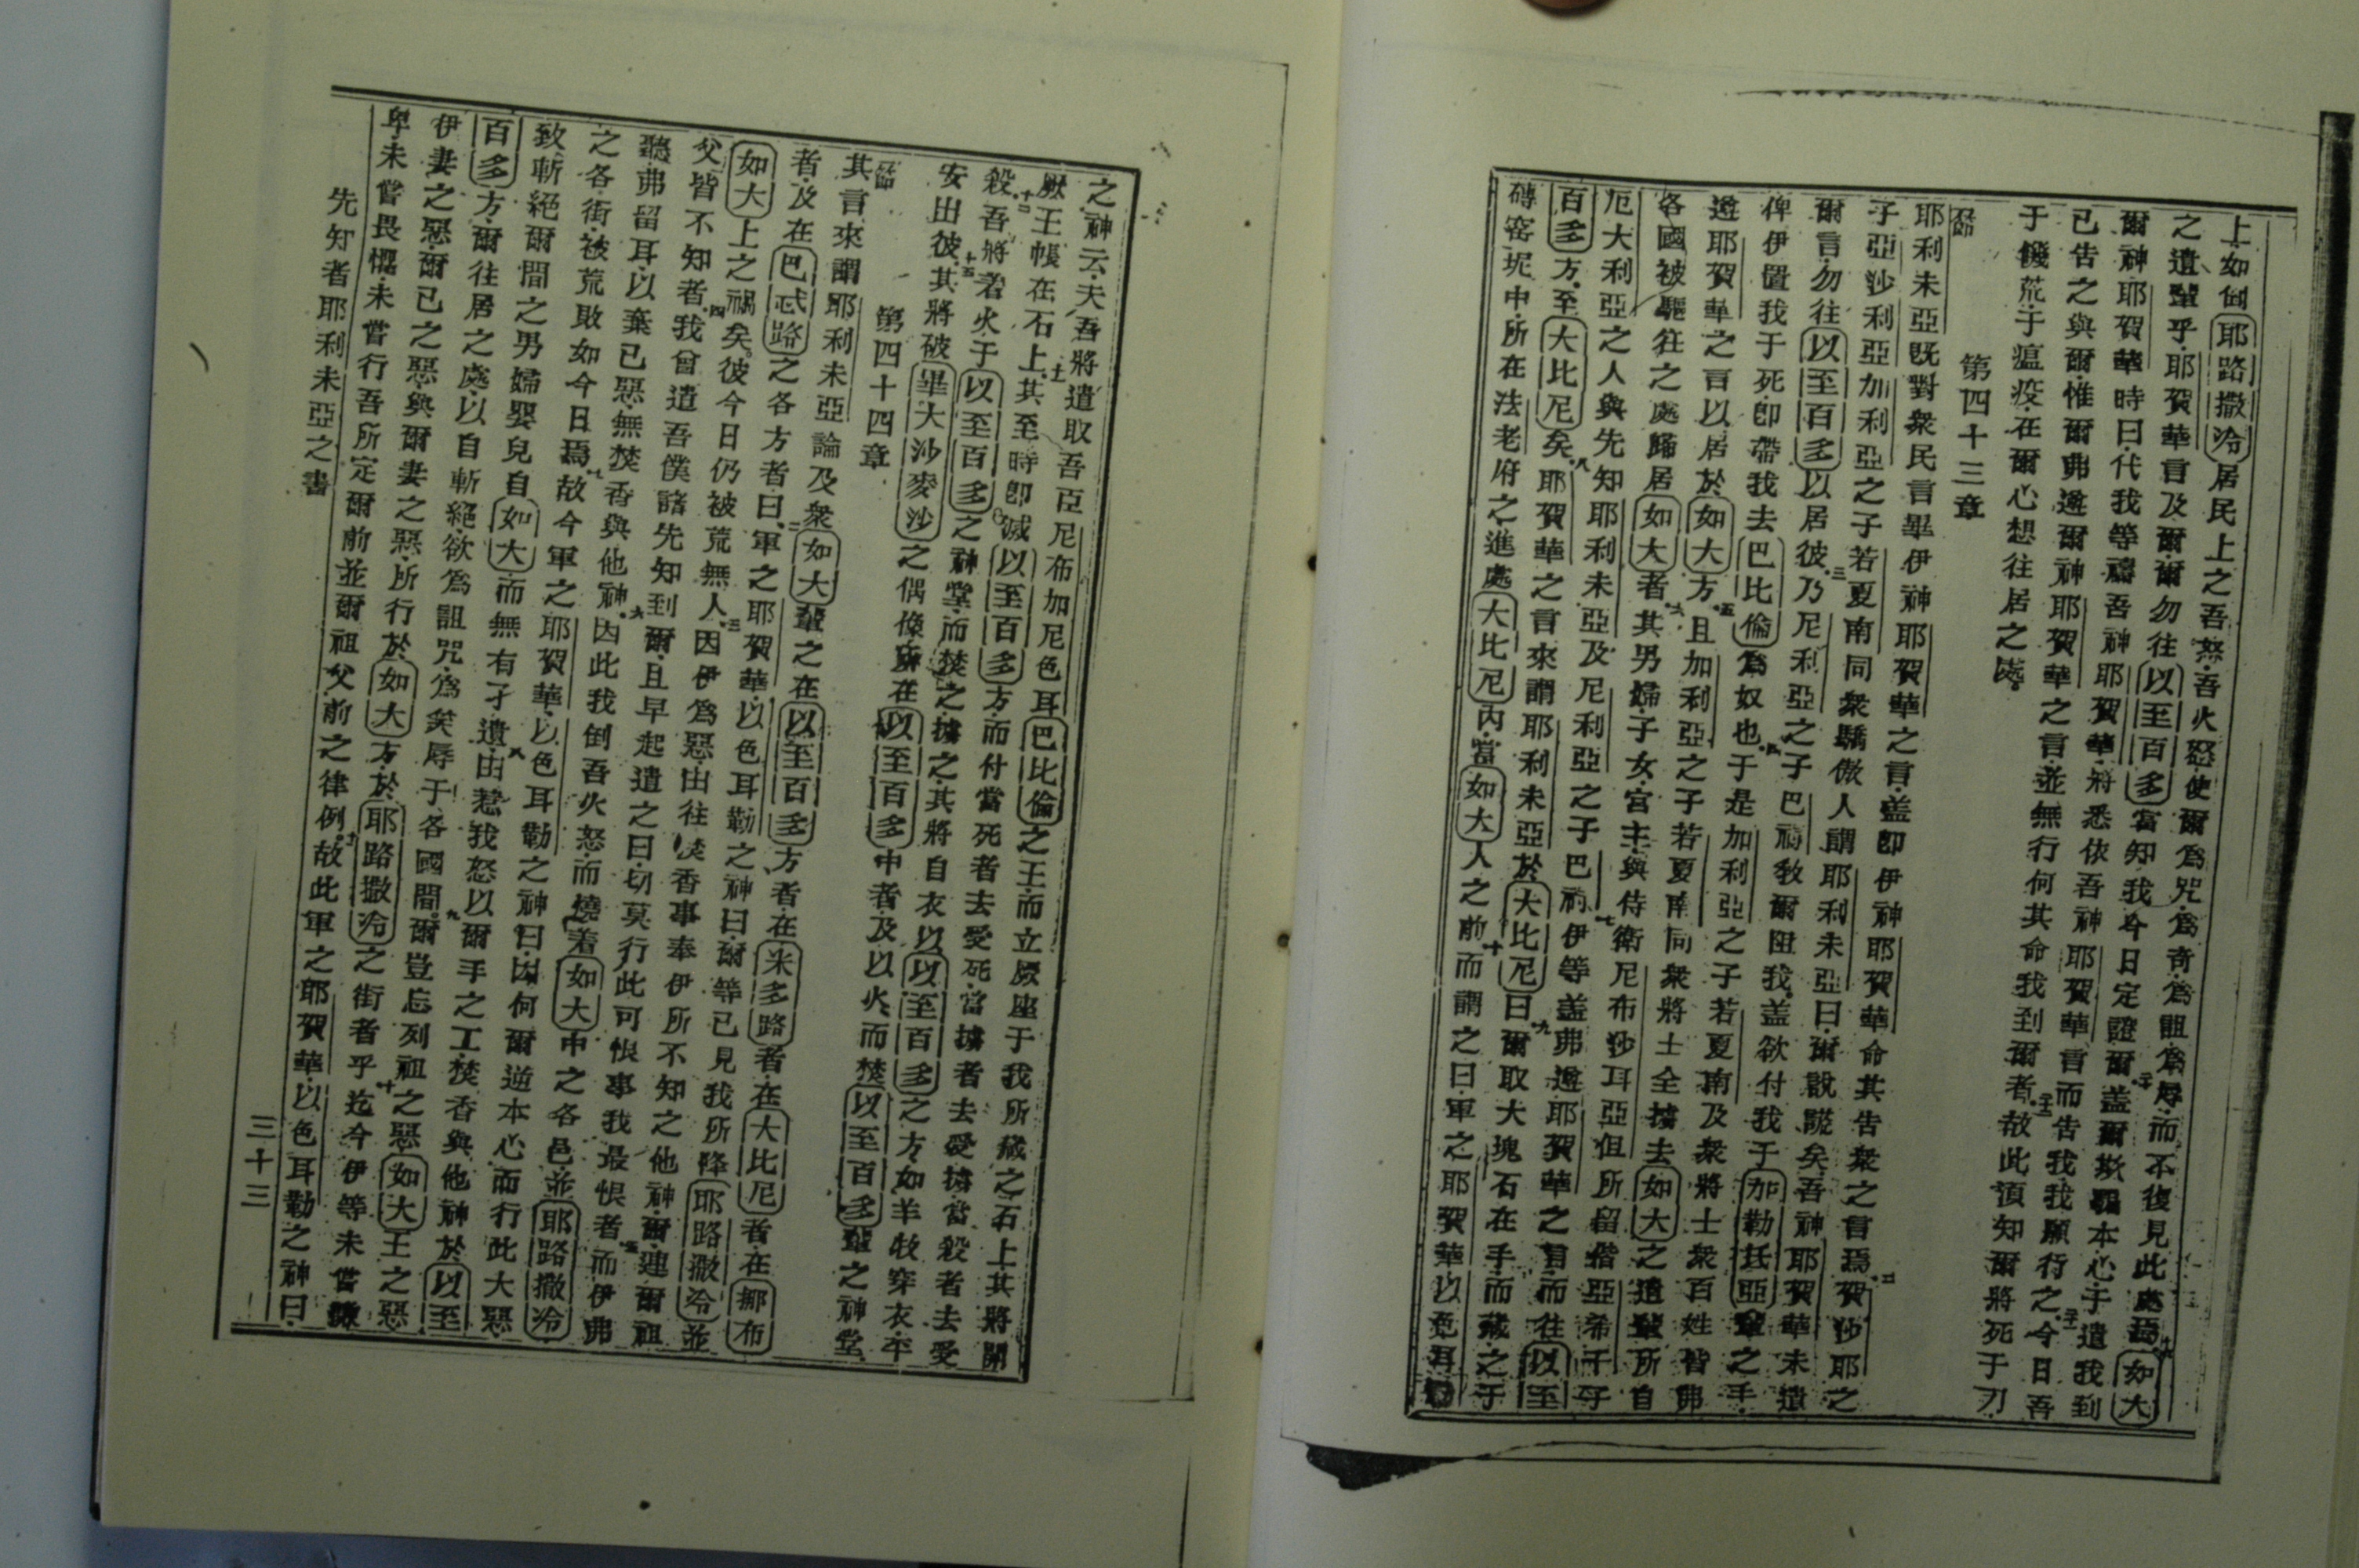 上如倒耶路撒冷居民上之吾怒吾火怒使爾為咒為奇為詛為辱而不復見此處焉十九如大
之遺輩乎耶賀華言及爾爾勿往以至百多當知我今日定證爾二十蓋爾欺騙本心于遣我到
爾神耶賀華時曰代我等禱吾神耶賀華將悉依吾神耶賀華言而告我我願行之二十一今日吾
已告之與爾惟爾弗遵爾神耶賀華之言並無行何其命我到爾者二十二故此須知爾將死于刀
于饑荒于瘟疫在爾心想往居之處
第四十三章
一節
耶利未亞既對衆民言畢伊神耶賀華之言蓋即伊神耶賀華命其告衆之言焉二賀沙耶之
子亞沙利亞加利亞之子若夏南同衆驕傲人謂耶利未亞曰爾說謊矣吾神耶賀華未遣
爾言勿往以至百多以居彼三乃尼利亞之子巴祿教爾阻我蓋欲付我于加勒氐亞輩之手
俾伊置我于死即帶我去巴比倫為奴也四于是加利亞之子若夏南及衆將士衆百姓皆弗
遵耶賀華之言以居於如大方五且加利亞之子若夏南同衆將士全擄去如大之遺輩所自
各國被驅往之處歸居如大者六其男婦子女宮主與侍衛尼布沙耳亞但所留偕亞希千子
厄大利亞之人與先知耶利未亞及尼利亞之子巴祿七伊等蓋弗遵耶賀華之言而往以至
百多方至大比尼矣八耶賀華之言來謂耶利未亞於大比尼曰九爾取大塊石在手而藏之于
磚窑坭中所在法老府之進處大比尼內當如大人之前十而謂之曰軍之耶賀華以色耳勒
之神云夫吾將遣取吾臣尼布加尼色耳巴比倫之王而立厥座于我所藏之石上其將開
厥王帳在石上十一其至時即滅以至百多方而付當死者去受死當擄者去受擄當殺者去受
殺十二吾將着火于以至百多之神堂而焚之擄之其將自衣以以至百多之方如羊牧穿衣平
安出彼十三其將破畢大沙麥沙之偶像所在以至百多中者及以火而焚以至百多輩之神堂
第四十四章
一節
其言來謂耶利未亞論及衆如大輩之在以至百多方者在米多路者在大比尼者在挪布
者及在巴忒路之各方者曰二軍之耶賀華以色耳勒之神曰爾等已見我所降耶路撒冷並
如大上之禍矣彼今日仍被荒無人三因伊為惡由往焚香事奉伊所不知之他神爾連爾祖
父皆不知者四我曾遣吾僕諸先知到爾且早起遣之曰切莫行此可恨事我最恨者五而伊弗
聽弗留耳以棄已惡無焚香與他神六因此我倒吾火怒而燒着如大中之各邑並耶路撒冷
之各街被荒敗如今日焉七故今軍之耶賀華以色耳勒之神曰因何爾逆本心而行此大惡
致斬絕爾間之男婦嬰兒自如大而無有孑遺八由惹我怒以爾手之工焚香與他神於以至
百多方爾往居之處以自斬絕欲為詛咒為笑辱于各國間九爾豈忘列祖之惡如大王之惡
伊妻之惡爾已之惡與爾妻之惡所行於如大方於耶路撒冷之街者乎十迄今伊等未嘗謙
卑未嘗畏懼未嘗行吾所定爾前並爾祖父前之律例十一故此軍之耶賀華以色耳勒之神曰
先知者耶利未亞之書
三十三